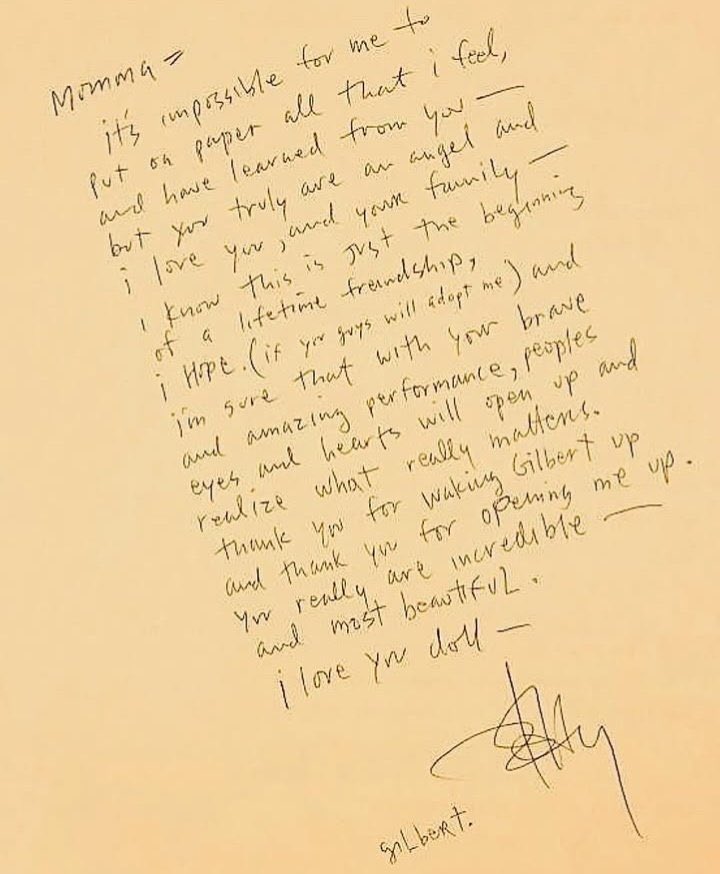 Momma =
it's impossible for me to
put on paper all that i feel,
and have learned from you —
but you truly are an angel and
i love you, and your family —
i know this is just the beginning
of a lifetime freindship,
i Hope. (if you guys will adopt me) and
i'm sure that with your brave
and amazing performance, peoples
eyes and hearts will open up and
realize what really matters.
thank you for waking Gilbert up
and thank you for opening me up.
you really are incredible —
and most beautiful.
i love you doll —
gilbert.